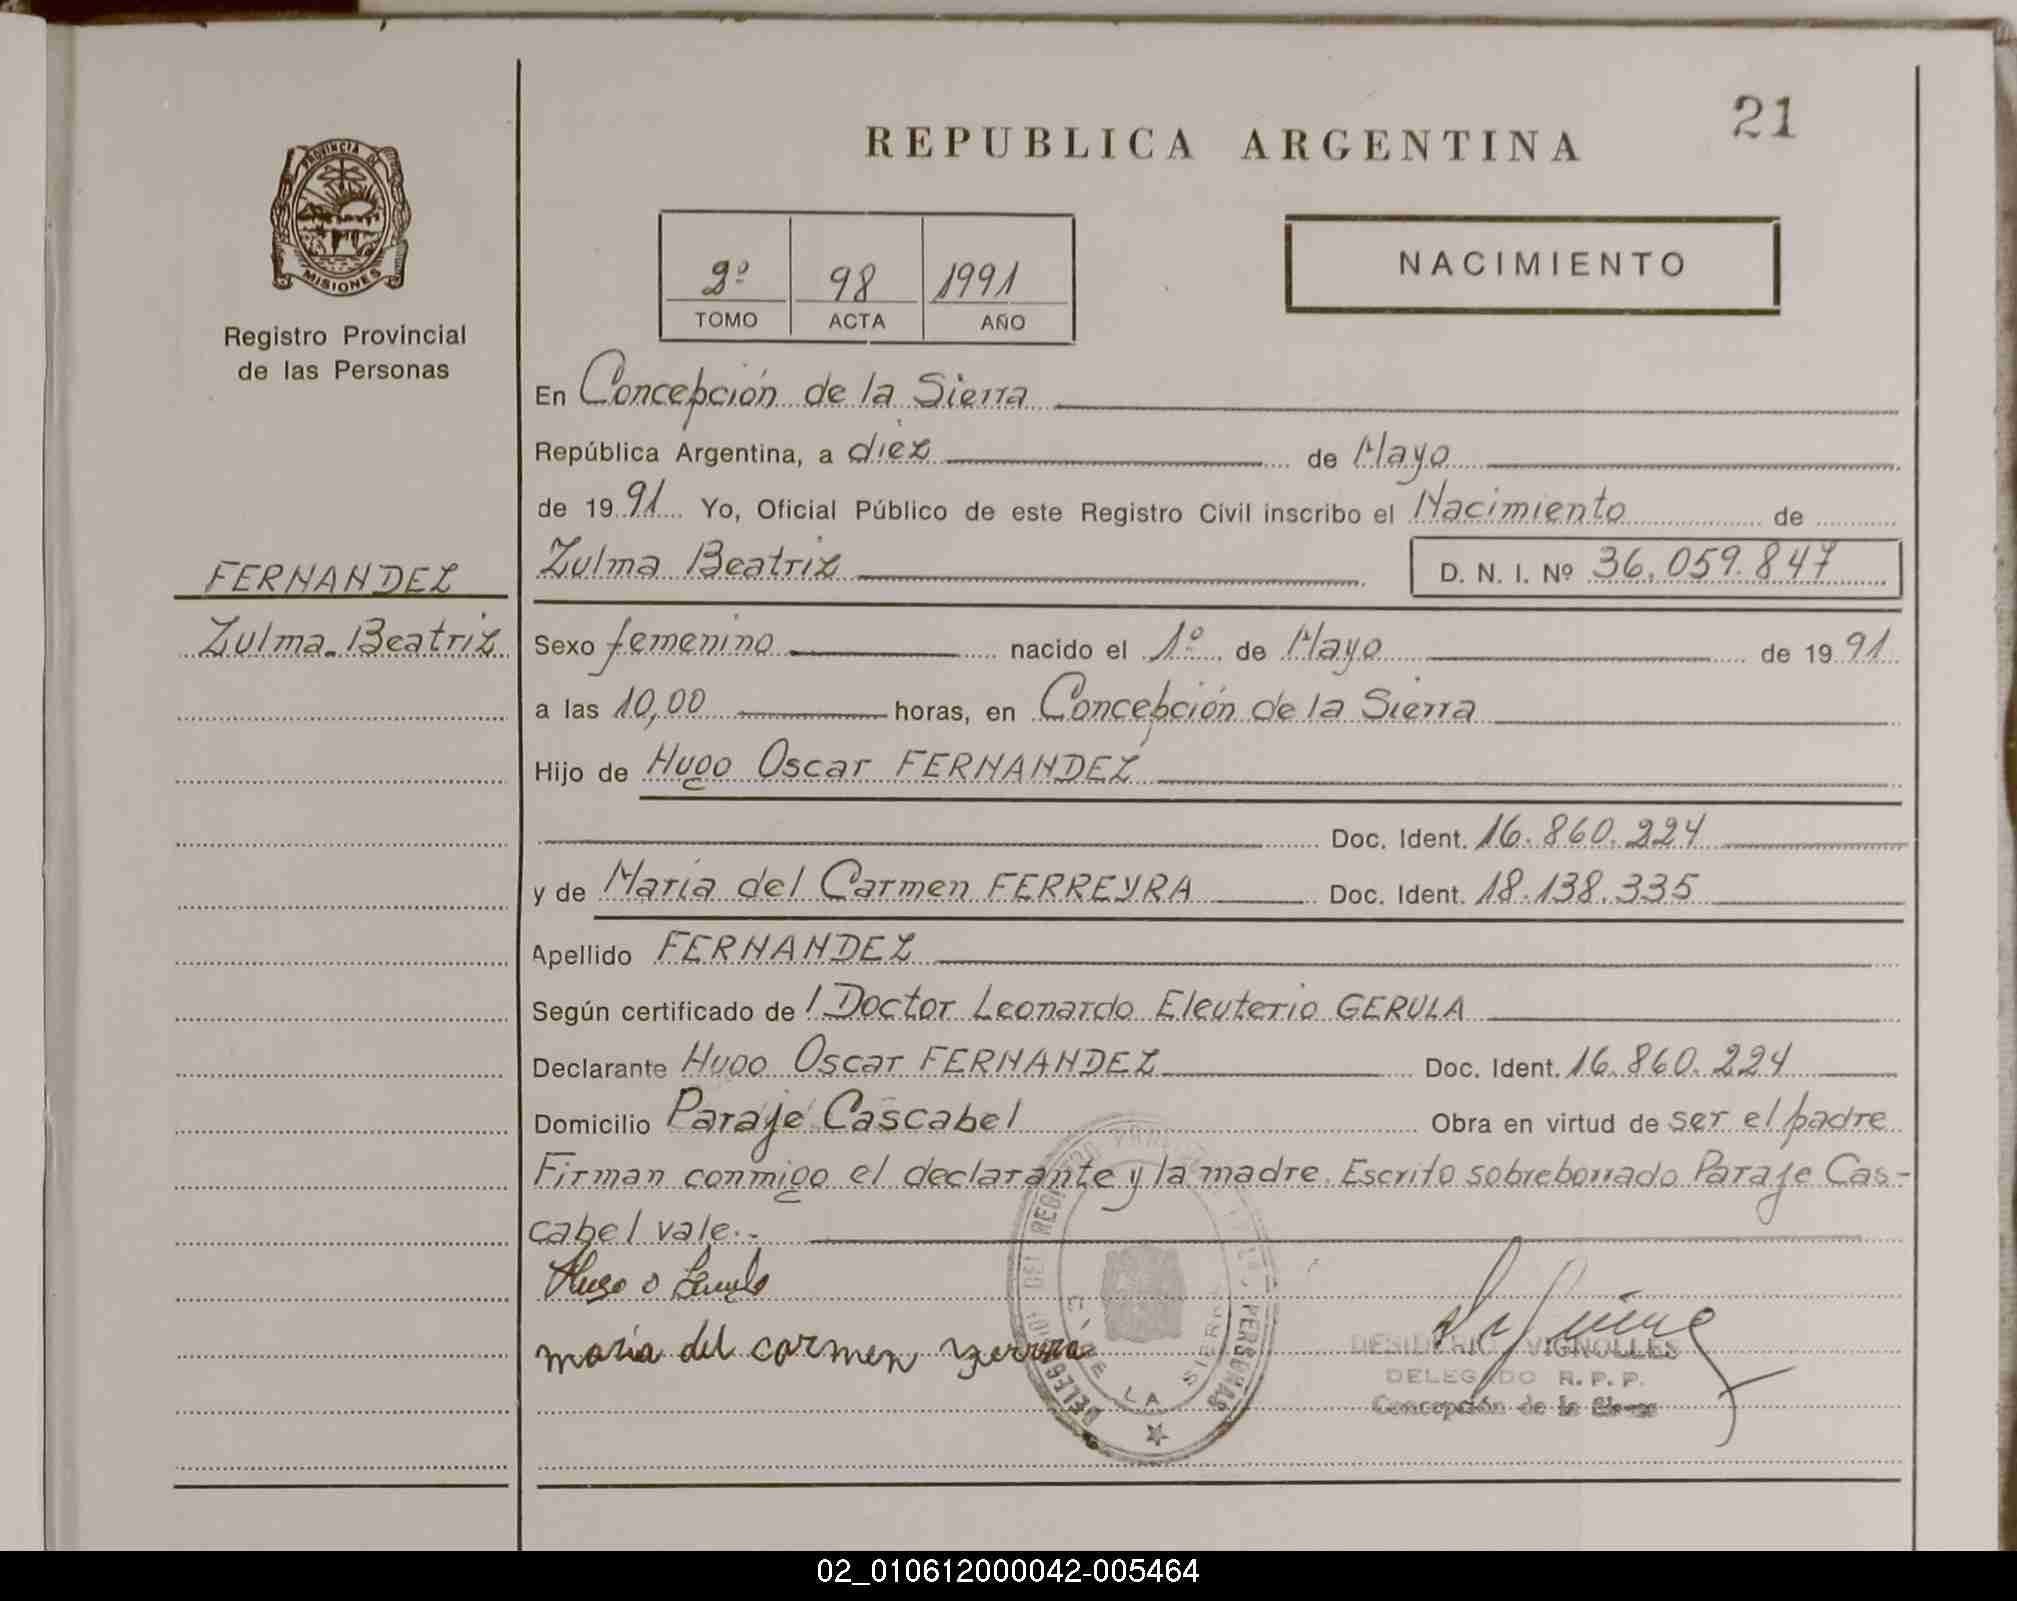 21
REPUBLICA ARGENTINA
PROVINCIA DE
MISIONES
Registro Provincial
de las Personas
2º 98 1991
TOMO ACTA AÑO
NACIMIENTO
En Concepción de la Sierra
República Argentina, a diez de Mayo
de 19 91 Yo, Oficial Público de este Registro Civil inscribo el Nacimiento de
FERNANDEZ
Zulma Beatriz D. N. I. Nº 36.059.847
Zulma Beatriz
Sexo femenino nacido el 1º de Mayo de 19 91
a las 10,00 horas, en Concepción de la Sierra
Hijo de Hugo Oscar FERNANDEZ
Doc. Ident. 16.860.224
y de María del Carmen FERREYRA Doc. Ident. 18.138.335
Apellido FERNANDEZ
Según certificado de l Doctor Leonardo Eleuterio GERULA
Declarante Hugo Oscar FERNANDEZ Doc. Ident. 16.860.224
Domicilio Paraje Cascabel Obra en virtud de ser el padre
Firman conmigo el declarante y la madre. Escrito sobreborrado Paraje Cas-
cabel vale.-
Hugo O
maria del carmen
DESIDERIO VIGNOLLES
DELEGADO R. P. P.
Concepción de la Sierra
02_010612000042-005464